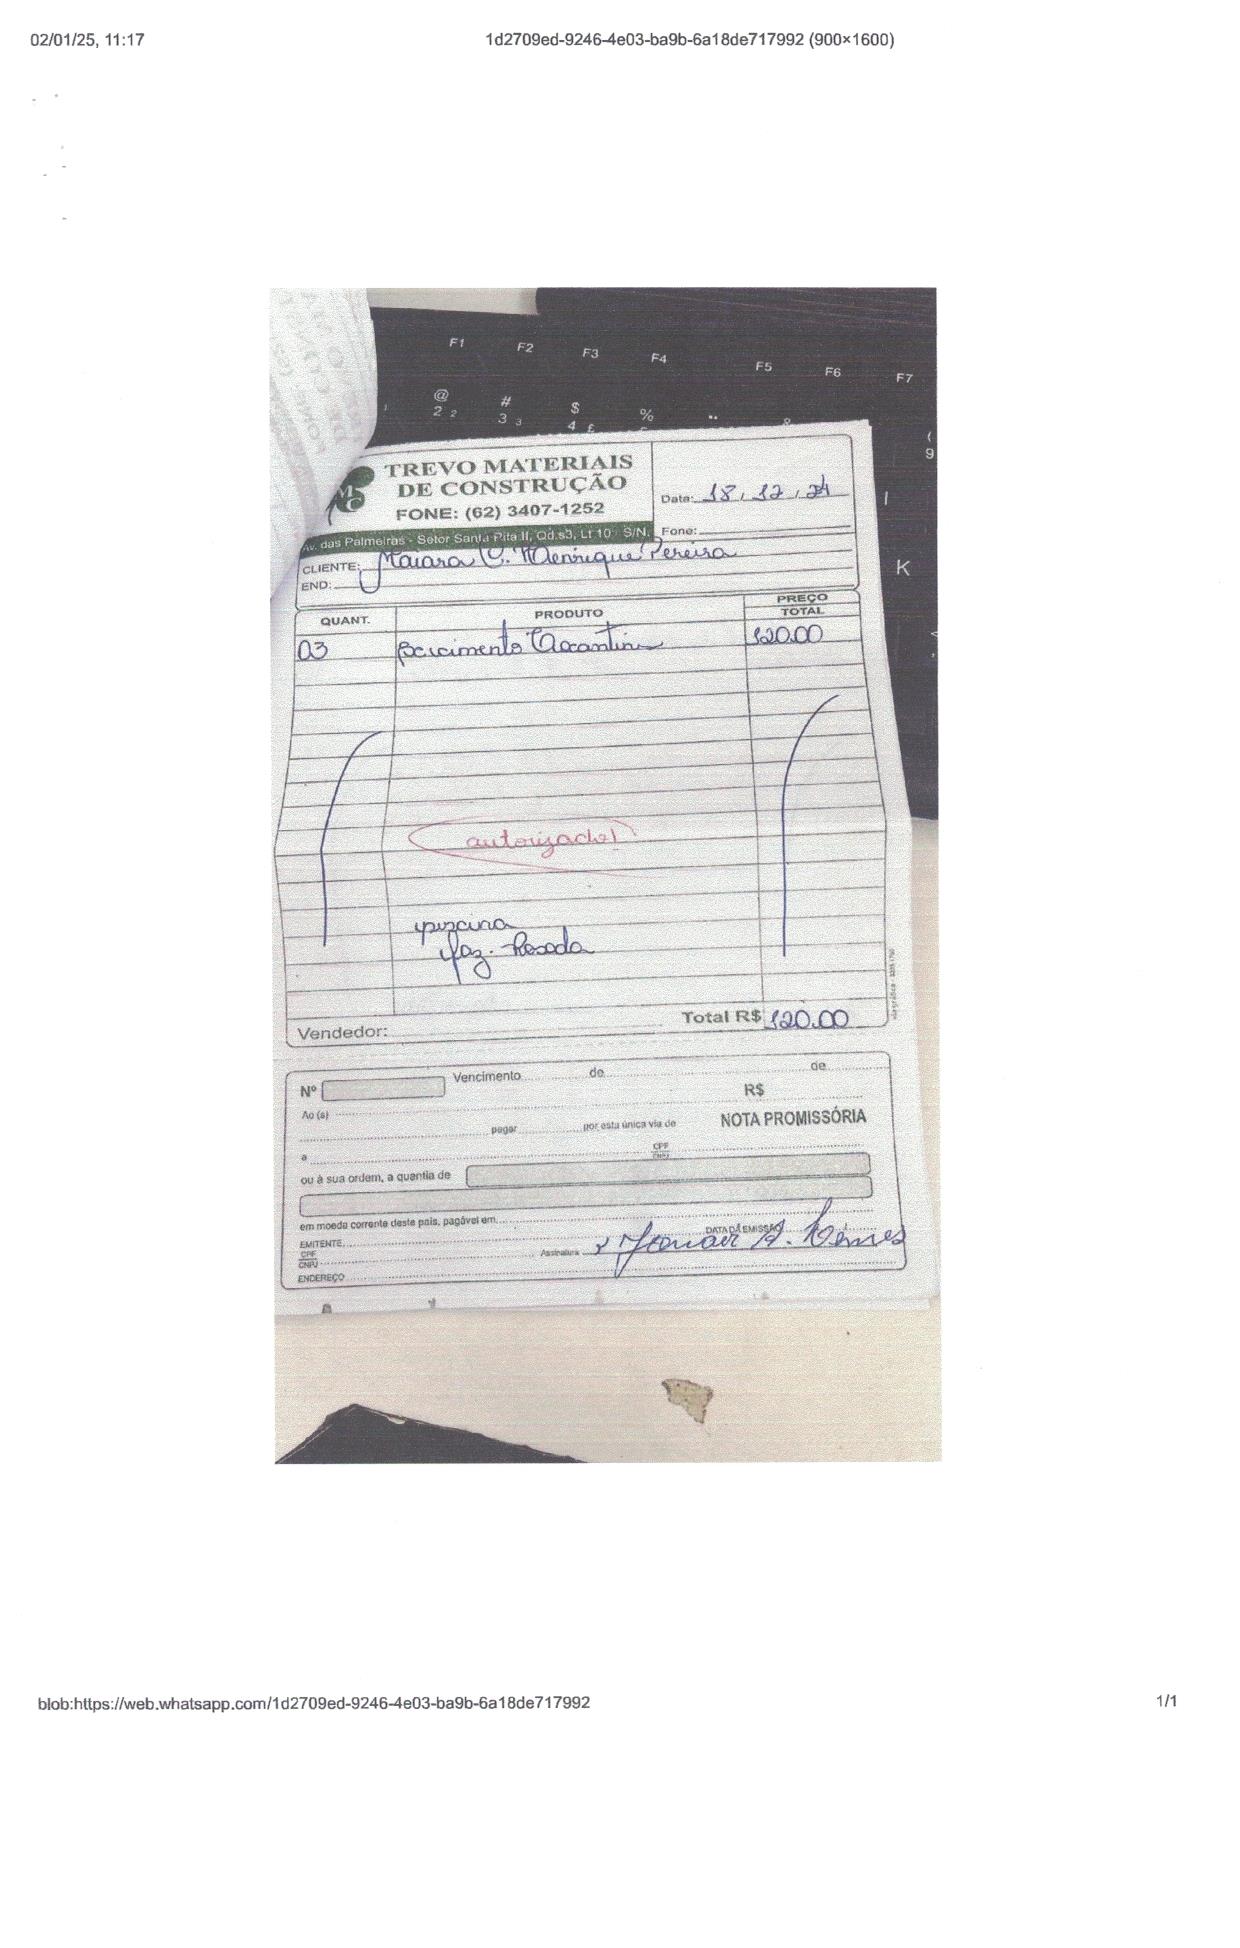 02/01/25, 11:17
1d2709ed-9246-4e03-ba9b-6a18de717992 (900×1600)
F1 F2 F3 F4 F5 F6 F7
@ # $ %
2 2 3 3 4 £
9
K
TREVO MATERIAIS
DE CONSTRUÇÃO
FONE: (62) 3407-1252
Av. das Palmeiras - Setor Santa Rita II, Qd.s3, Lt 10 - S/N.
Data: 18, 12, 24
Fone:
CLIENTE: Maiara C. Henrique Pereira
END:
QUANT. PRODUTO PREÇO TOTAL
03 cimento Tocantins 120.00
autorizado!
piscina
faz.
Vendedor:
Total R$ 120.00
Nº
Vencimento de de
R$
Ao (s)
pagar por esta única via de NOTA PROMISSÓRIA
a
CPF
CNPJ
ou à sua ordem, a quantia de
em moeda corrente deste país, pagável em
EMITENTE
DATA DA EMISSÃO
CPF
CNPJ
Assinatura
ENDEREÇO
blob:https://web.whatsapp.com/1d2709ed-9246-4e03-ba9b-6a18de717992
1/1